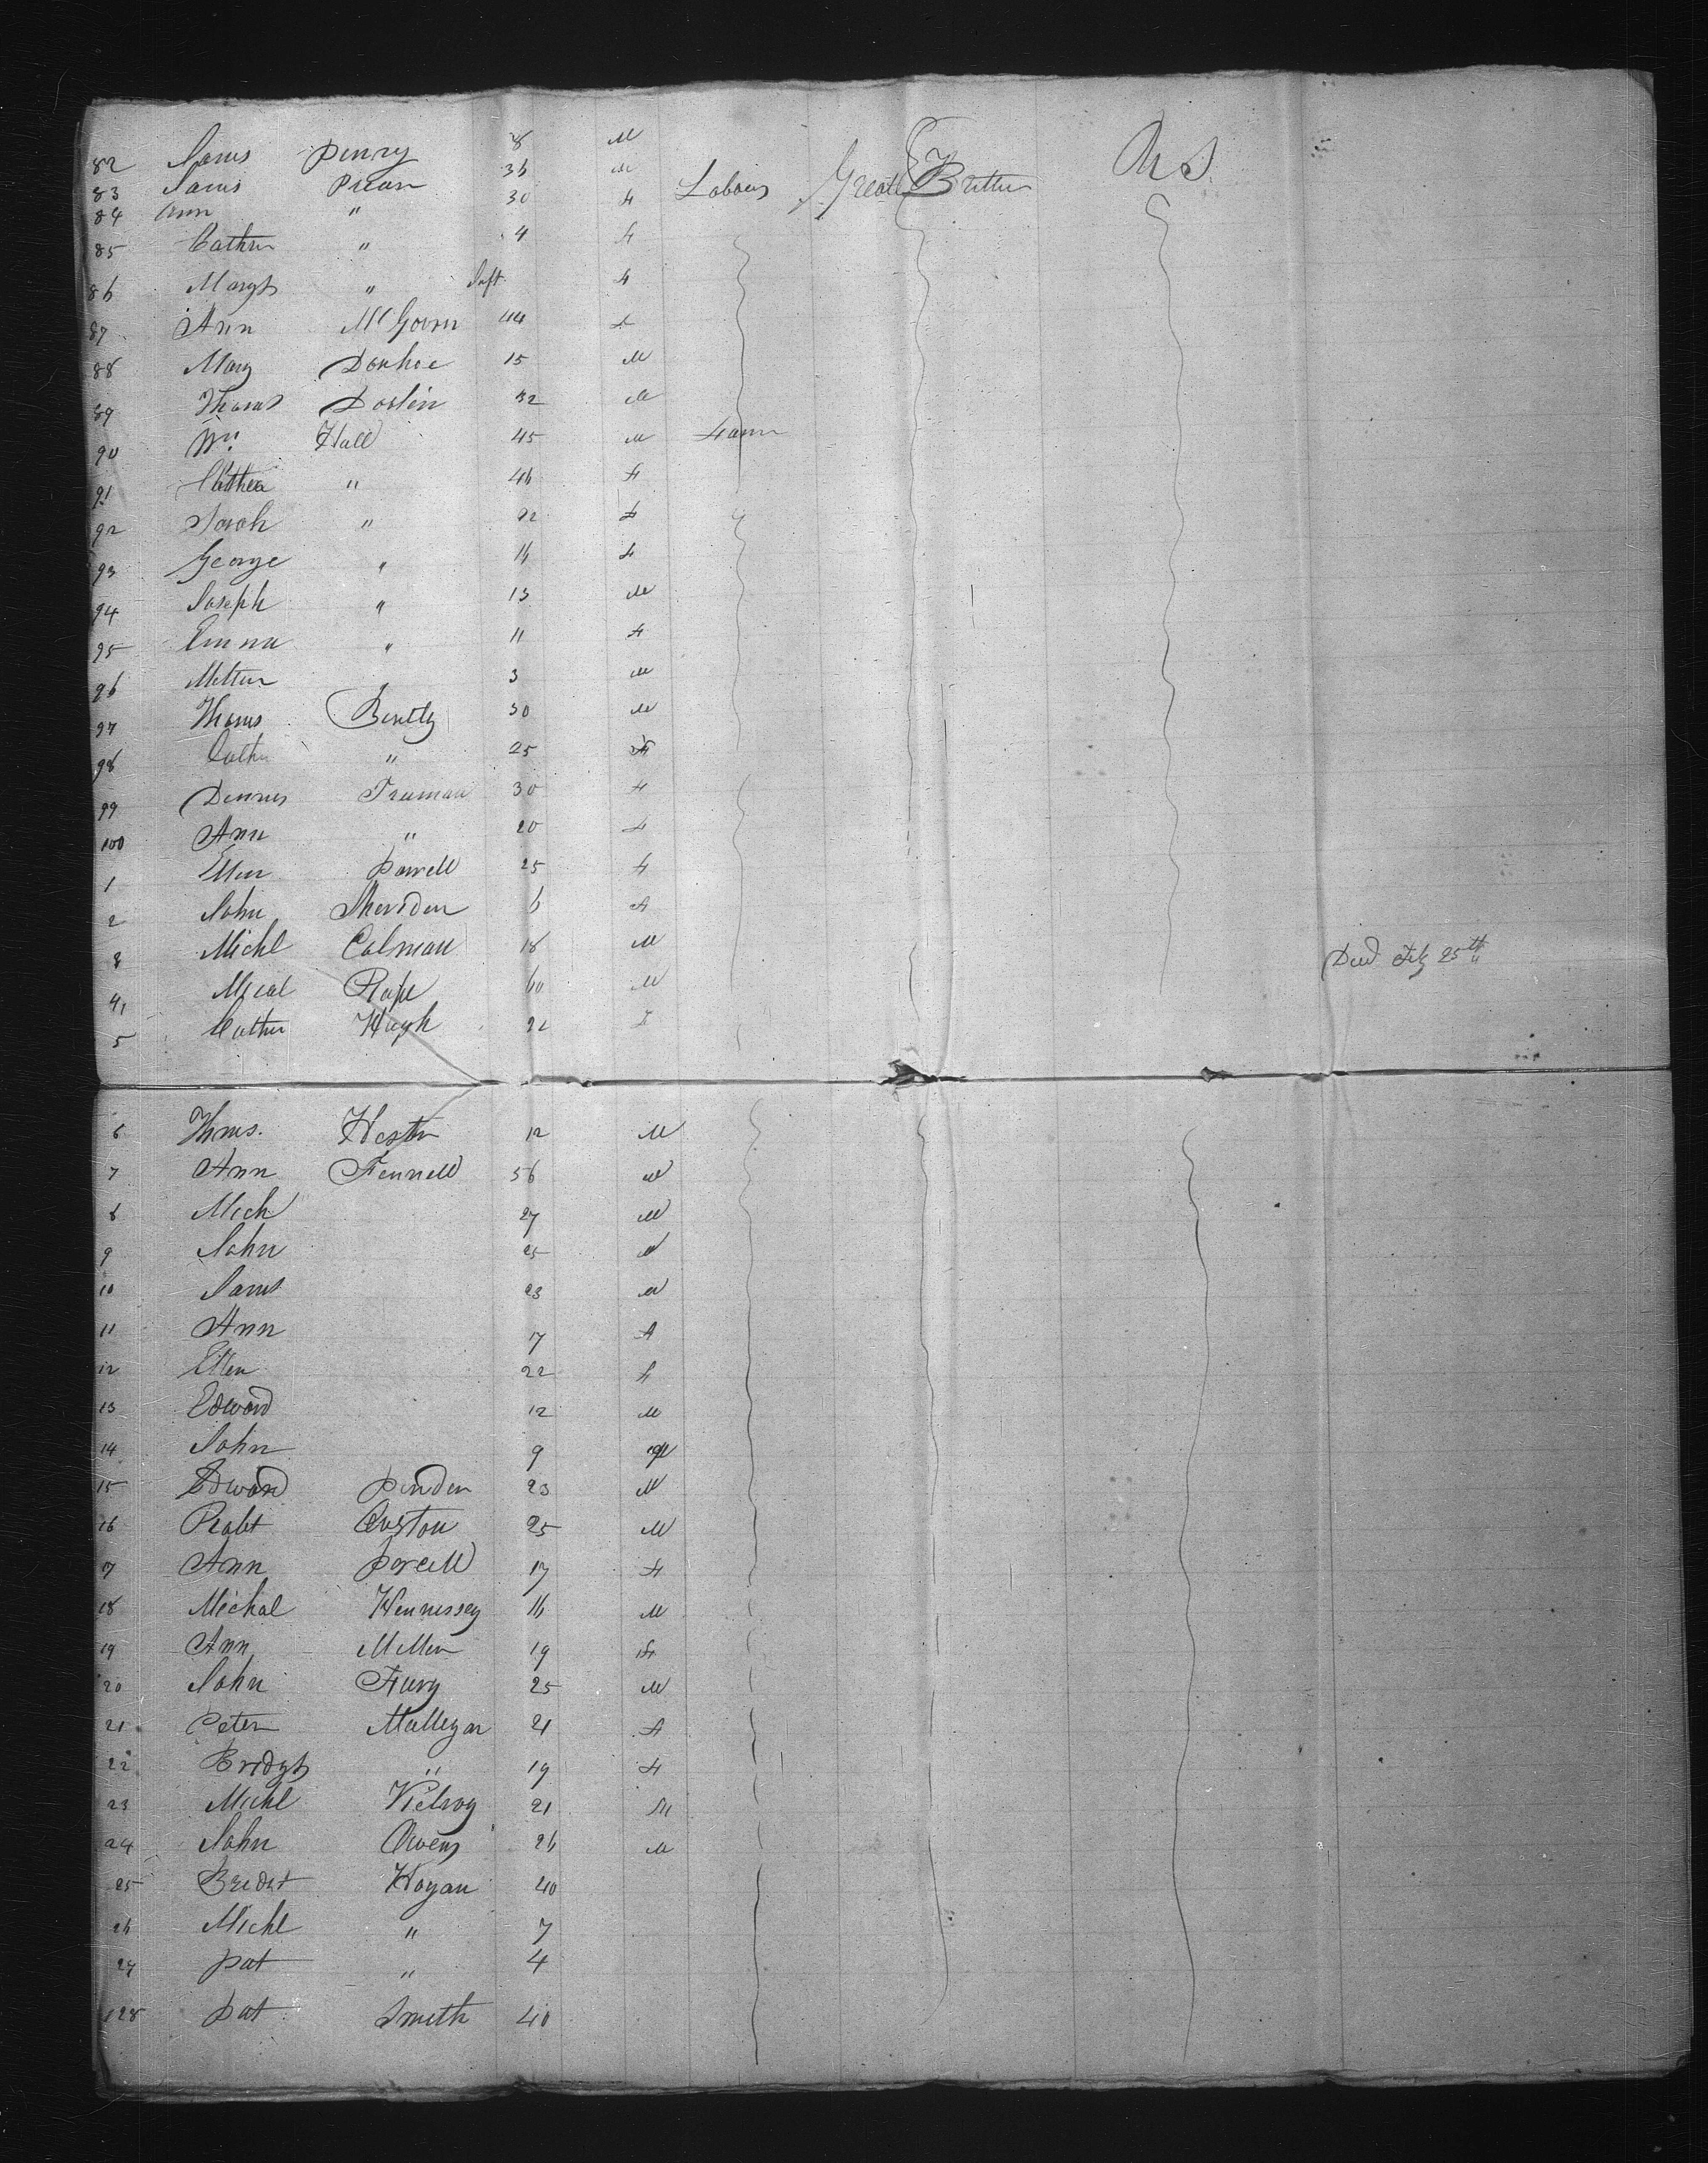 82 Jams Penry 8 M
83 Jams Prior 36 M Labour Great Brittn U S
84 Ann " 30 F
85 Cathn " 4 F
86 Margt " Inft F
87 Ann McGovrn 44 F
88 Mary Donhoe 15 M
89 Thomas Doslin 32 M
90 Wm Hall 45 M Farm
91 " 46 F
92 Sarah " 22 F
93 George " 16 F
94 Joseph " 13 M
95 Emma " 11 F
96 " 3 M
97 Thoms Bently 30 M
98 Cathn " 25 F
99 Dennis Truman 30 F
100 Ann " 20 F
1 Ellen Powell 25 F
2 John Sheriden 6 F
3 Michl Colman 18 M Died Feb 25th
4 Mical 60 M
5 Cather Hugh 22 F
6 Thms. Hestn 12 M
7 Ann Fennell 56 M
8 Mich 27 M
9 John 25 M
10 Jams 23 M
11 Ann 7 F
12 Ellen 22 F
13 Edward 12 M
14 John 9 M
15 Edward Pinden 23 M
16 Robt Custon 25 M
17 Ann Porcell 17 F
18 Michal Hennessey 16 M
19 Ann Millen 19 F
20 John Fury 25 M
21 Peter Mullegan 21 F
22 Bridgt " 19 F
23 Michl Kielroy 21 M
24 John Owens 26 M
25 Bridgt Hogan 40
26 Michl " 7
27 Pat " 4
128 Pat Smith 40